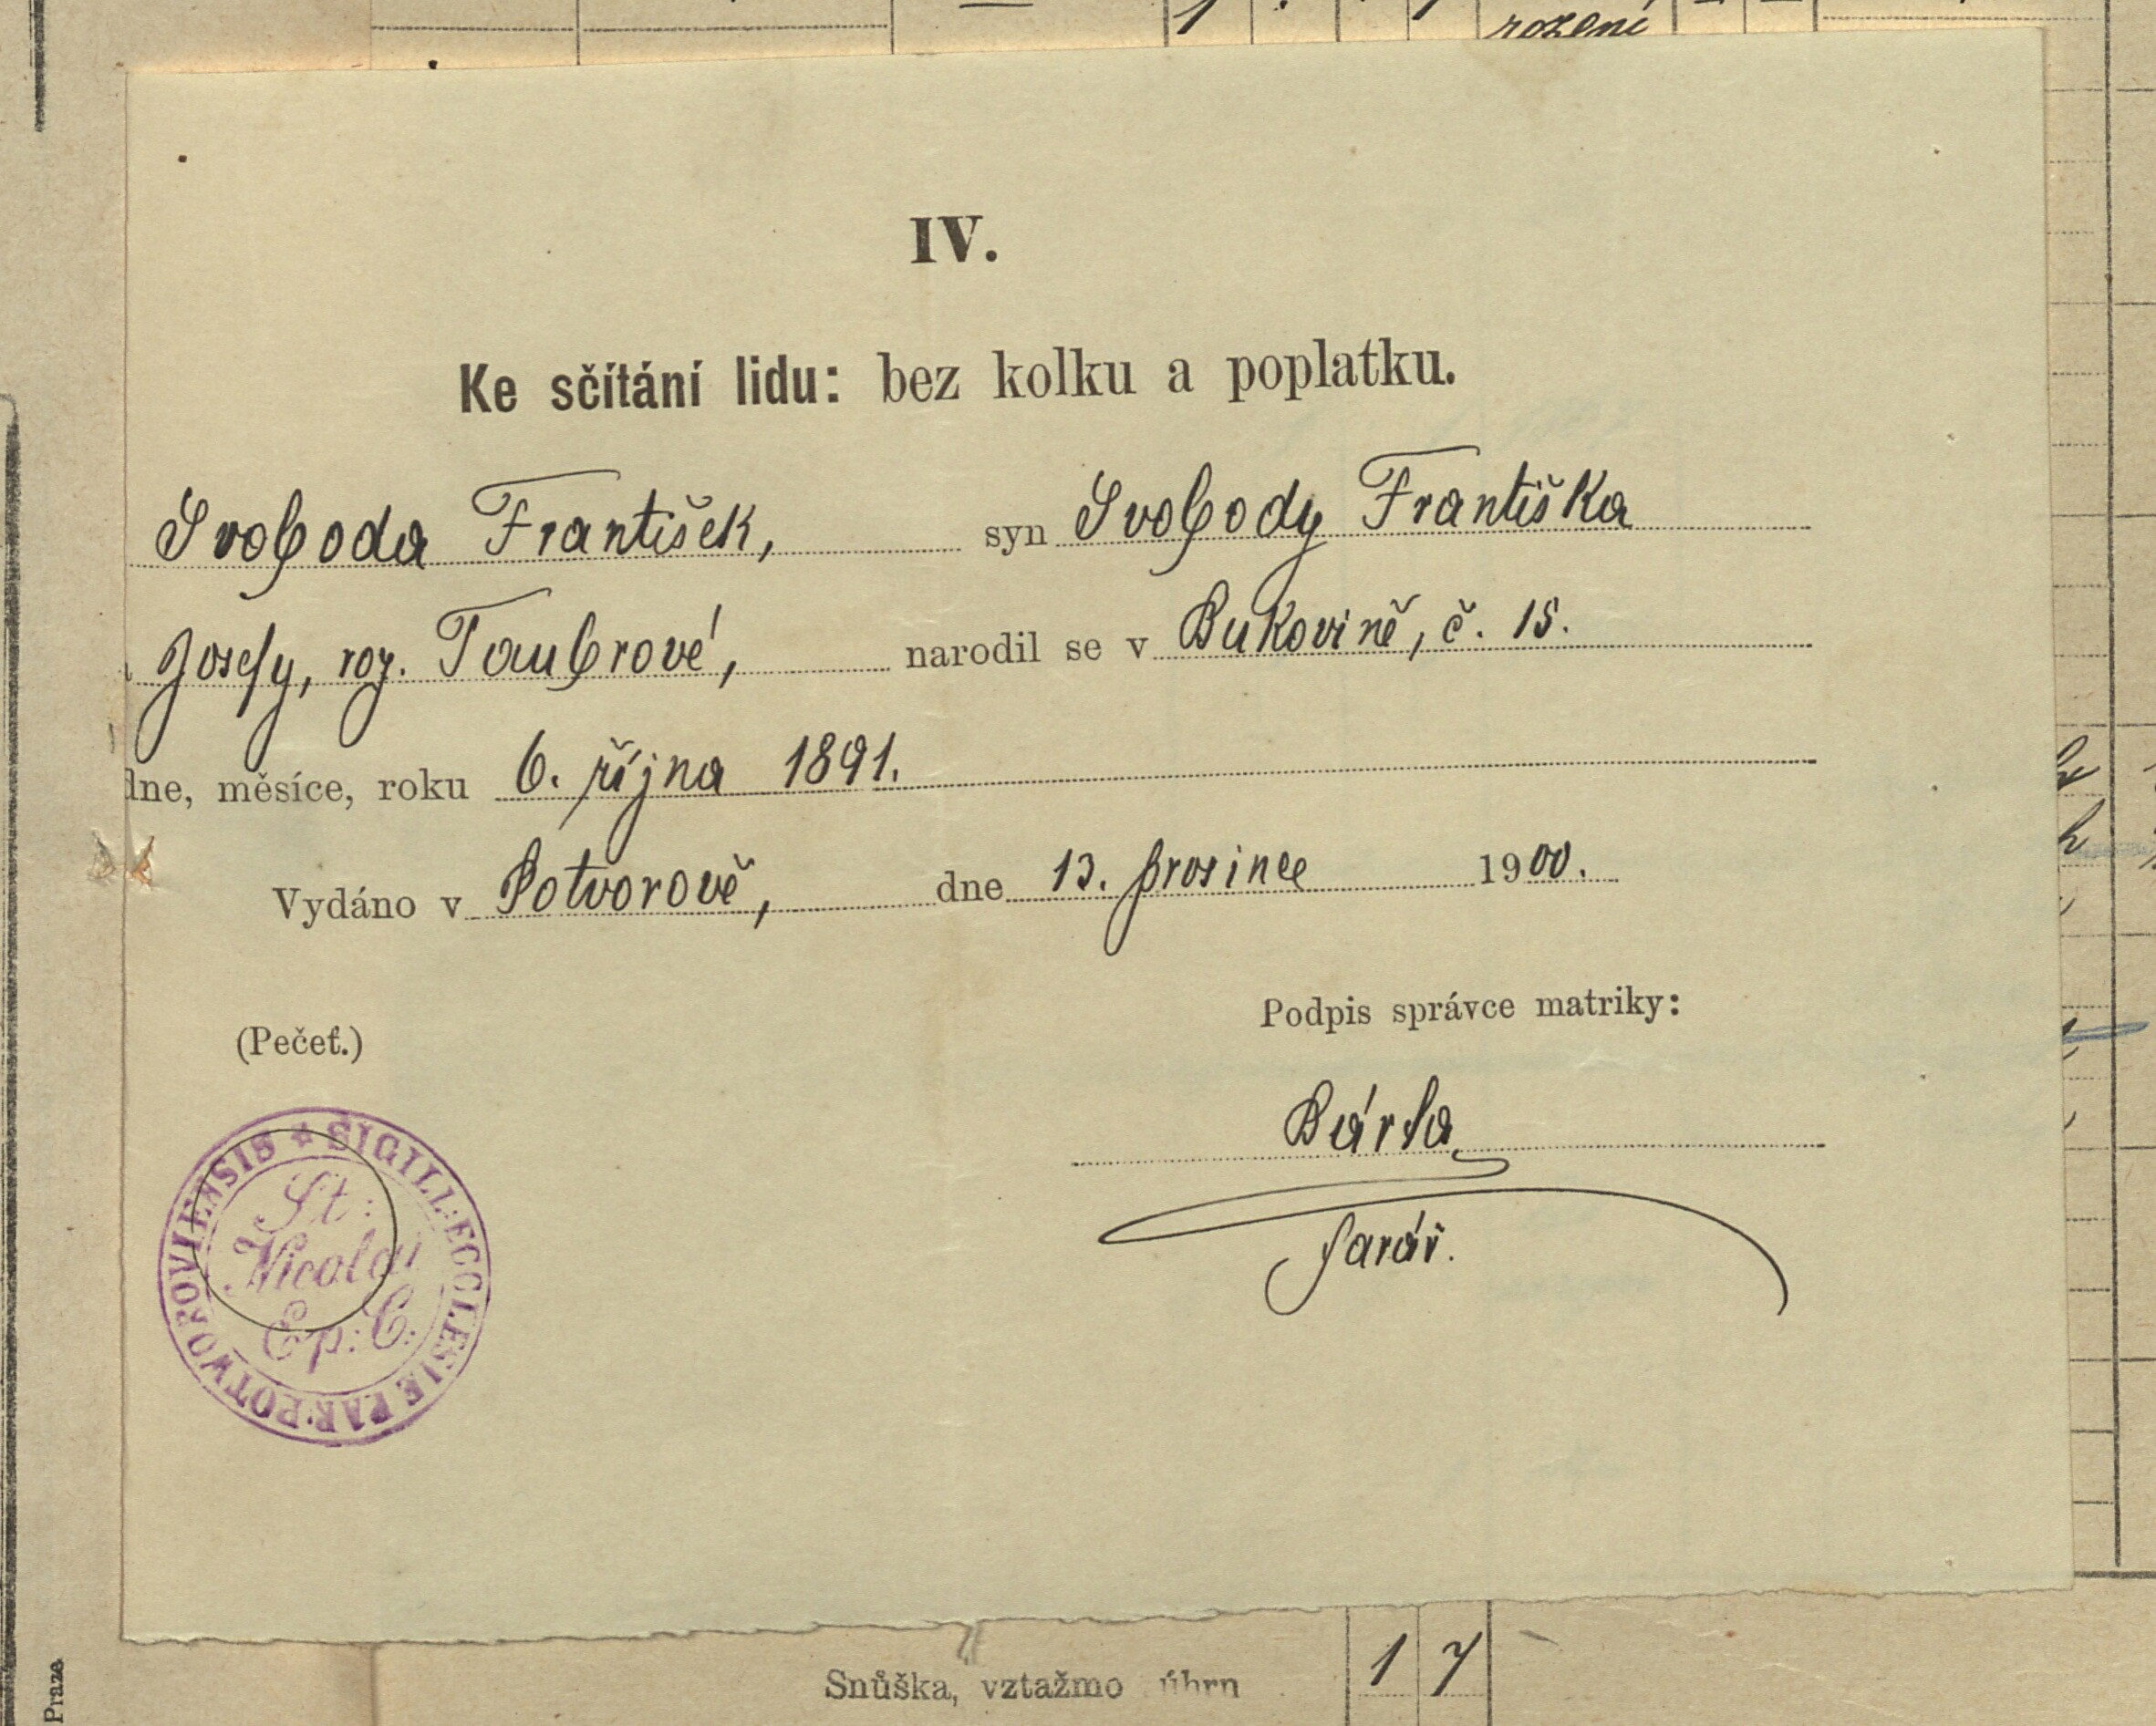 rození
IV.
Ke sčítání lidu: bez kolku a poplatku.
Svoboda František, syn Svobody Františka
Josefy, roz. Taubrové, narodil se v Bukovině, č. 15.
dne, měsíce, roku 6. října 1891.
Vydáno v Potvorově, dne 13. prosince 1900.
Podpis správce matriky:
(Pečeť.)
Bárta
farář.
SIGILL: ECCLESIE PAR: POTWOROVIENSIS
St:
Nicolai
Ep: C:
Snůška, vztažmo úhrn 1 7
Praze